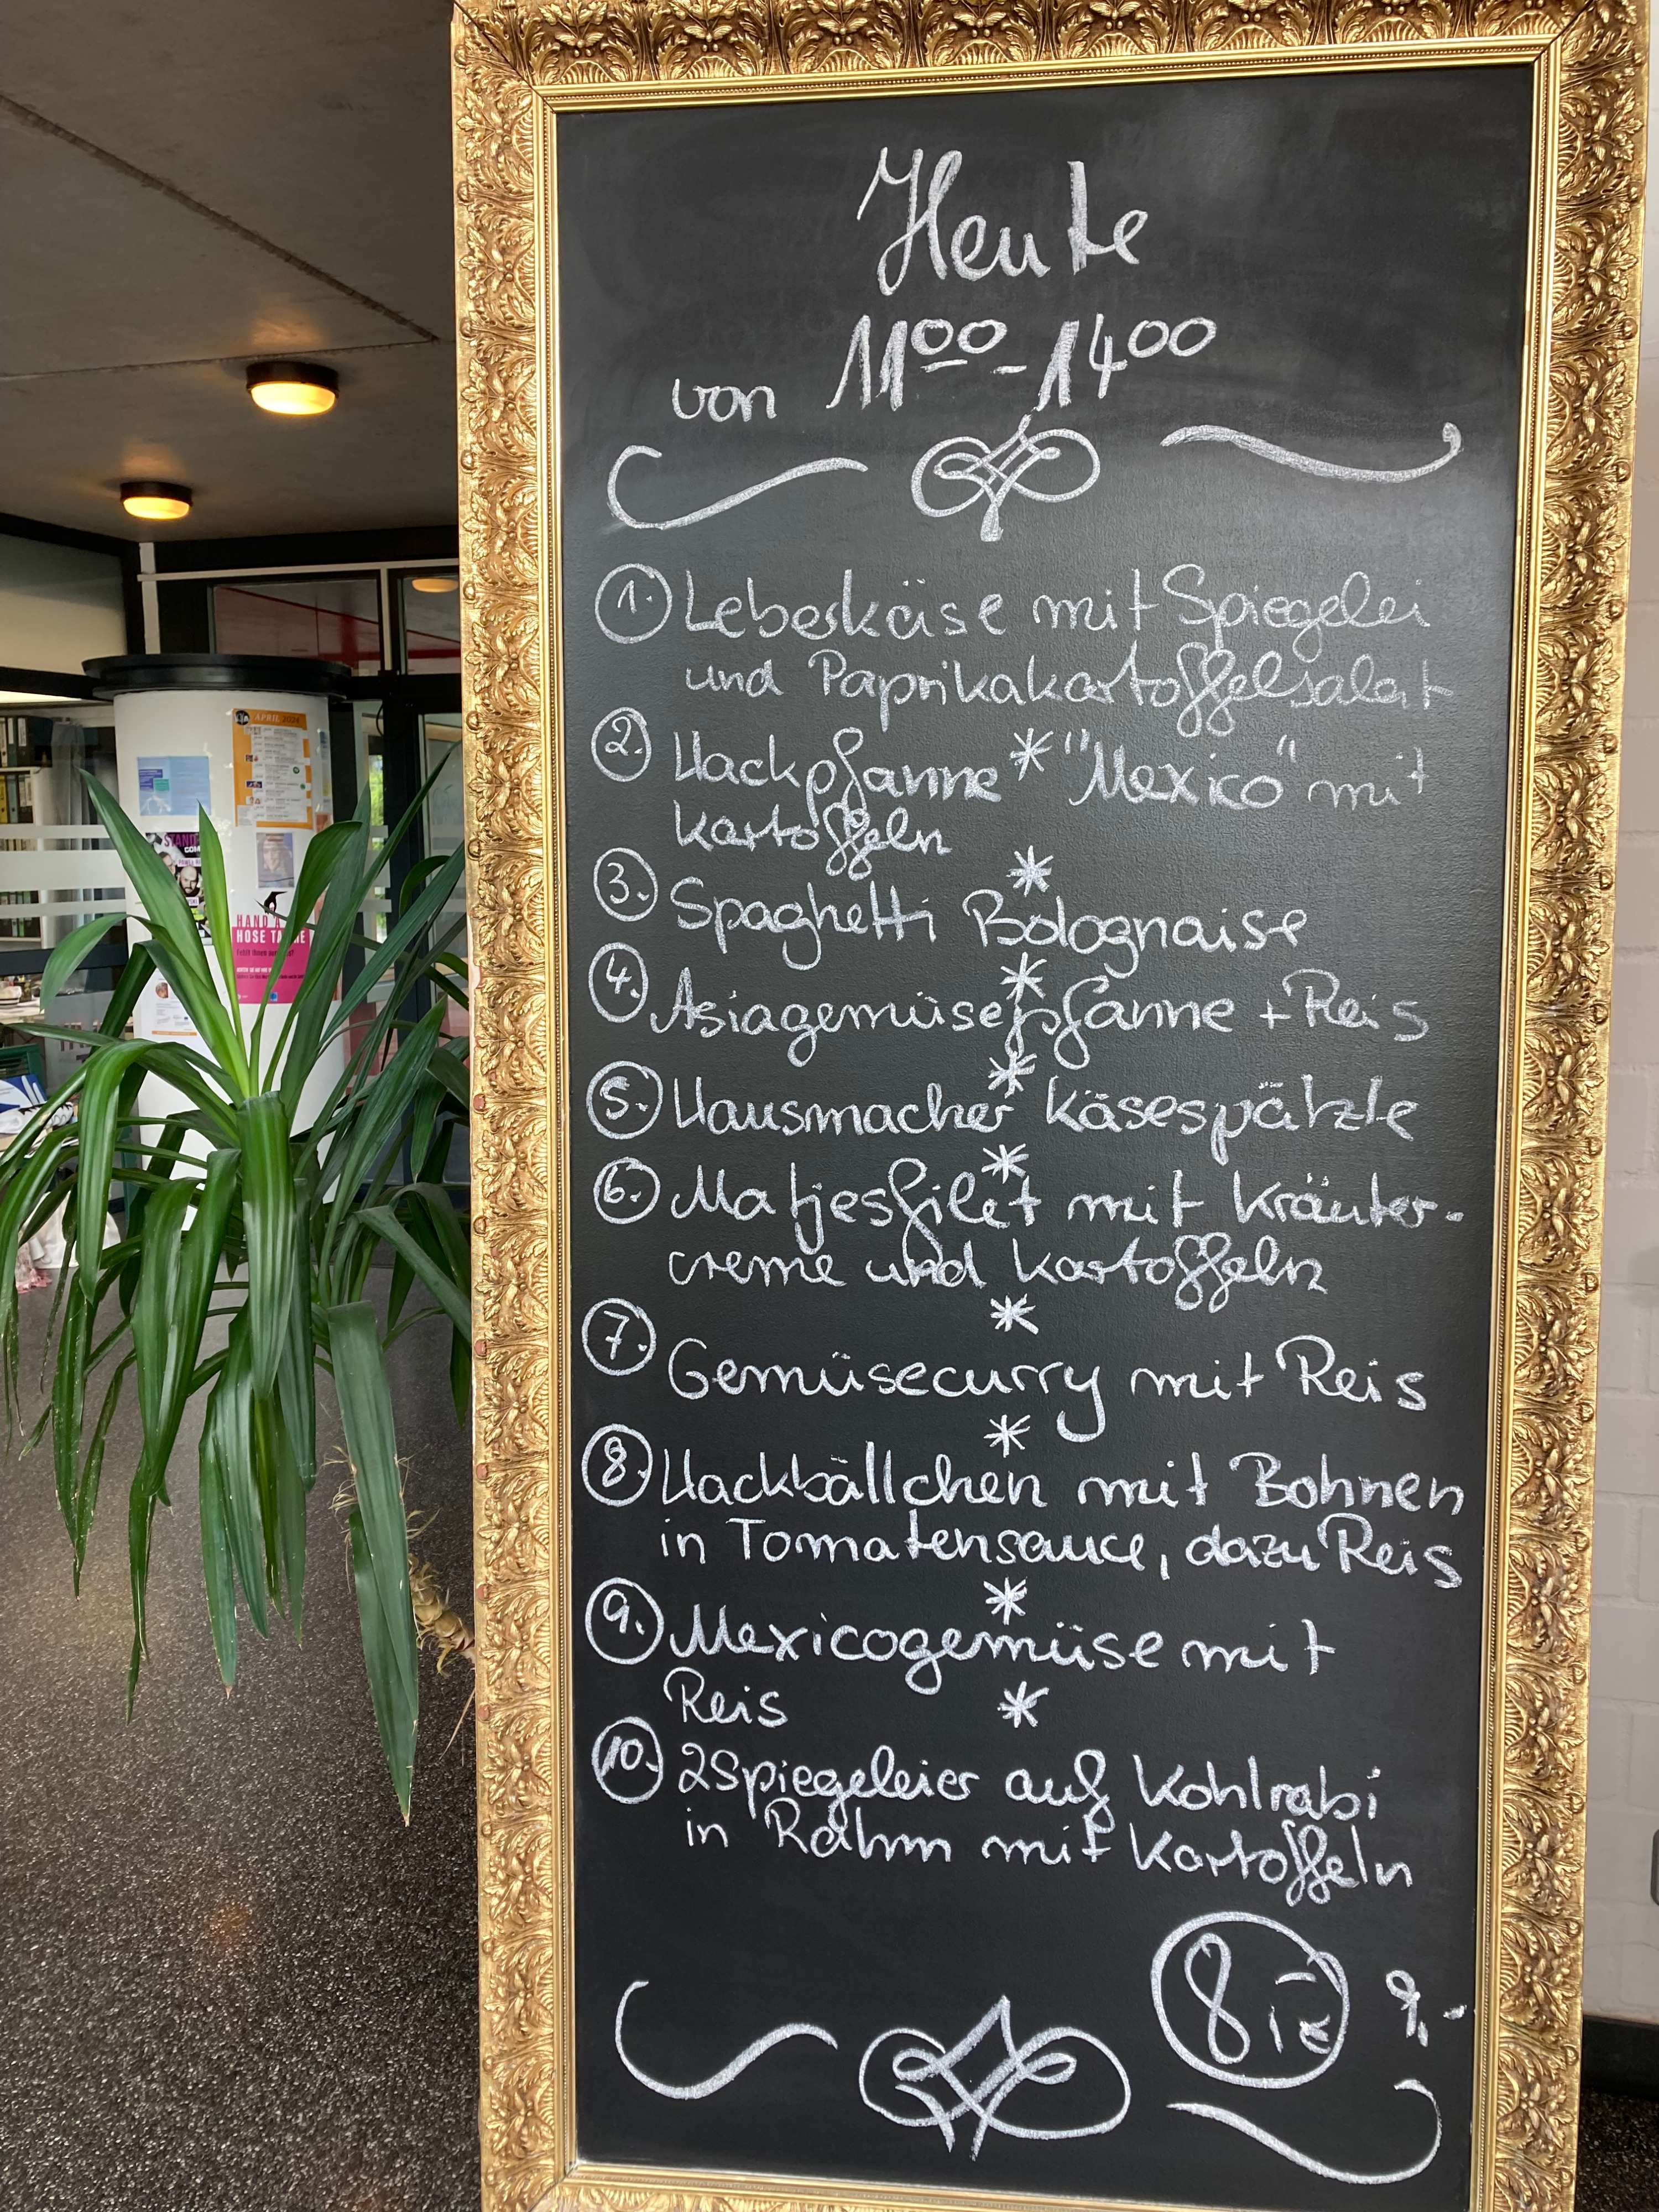 Heute
von 11⁰⁰ - 14⁰⁰
1. Leberkäise mit Spiegelei
und Paprikakartoffelsalat
2. Hackpfanne * "Mexico" mit
Kartoffeln
*
3. Spaghetti Bolognaise
*
4. Asiagemüsepfanne + Reis
*
5. Hausmacher Käsespätzle
*
6. Matjesfilet mit Kräuter-
creme und Kartoffeln
*
7. Gemüsecurry mit Reis
*
8. Hackbällchen mit Bohnen
in Tomatensauce, dazu Reis
*
9. Mexicogemüse mit
Reis *
10. 2 Spiegeleier auf Kohlrabi
in Rahm mit Kartoffeln
8,- € 9,-
APRIL 2024
STAND
COM
HAND A
HOSE TA